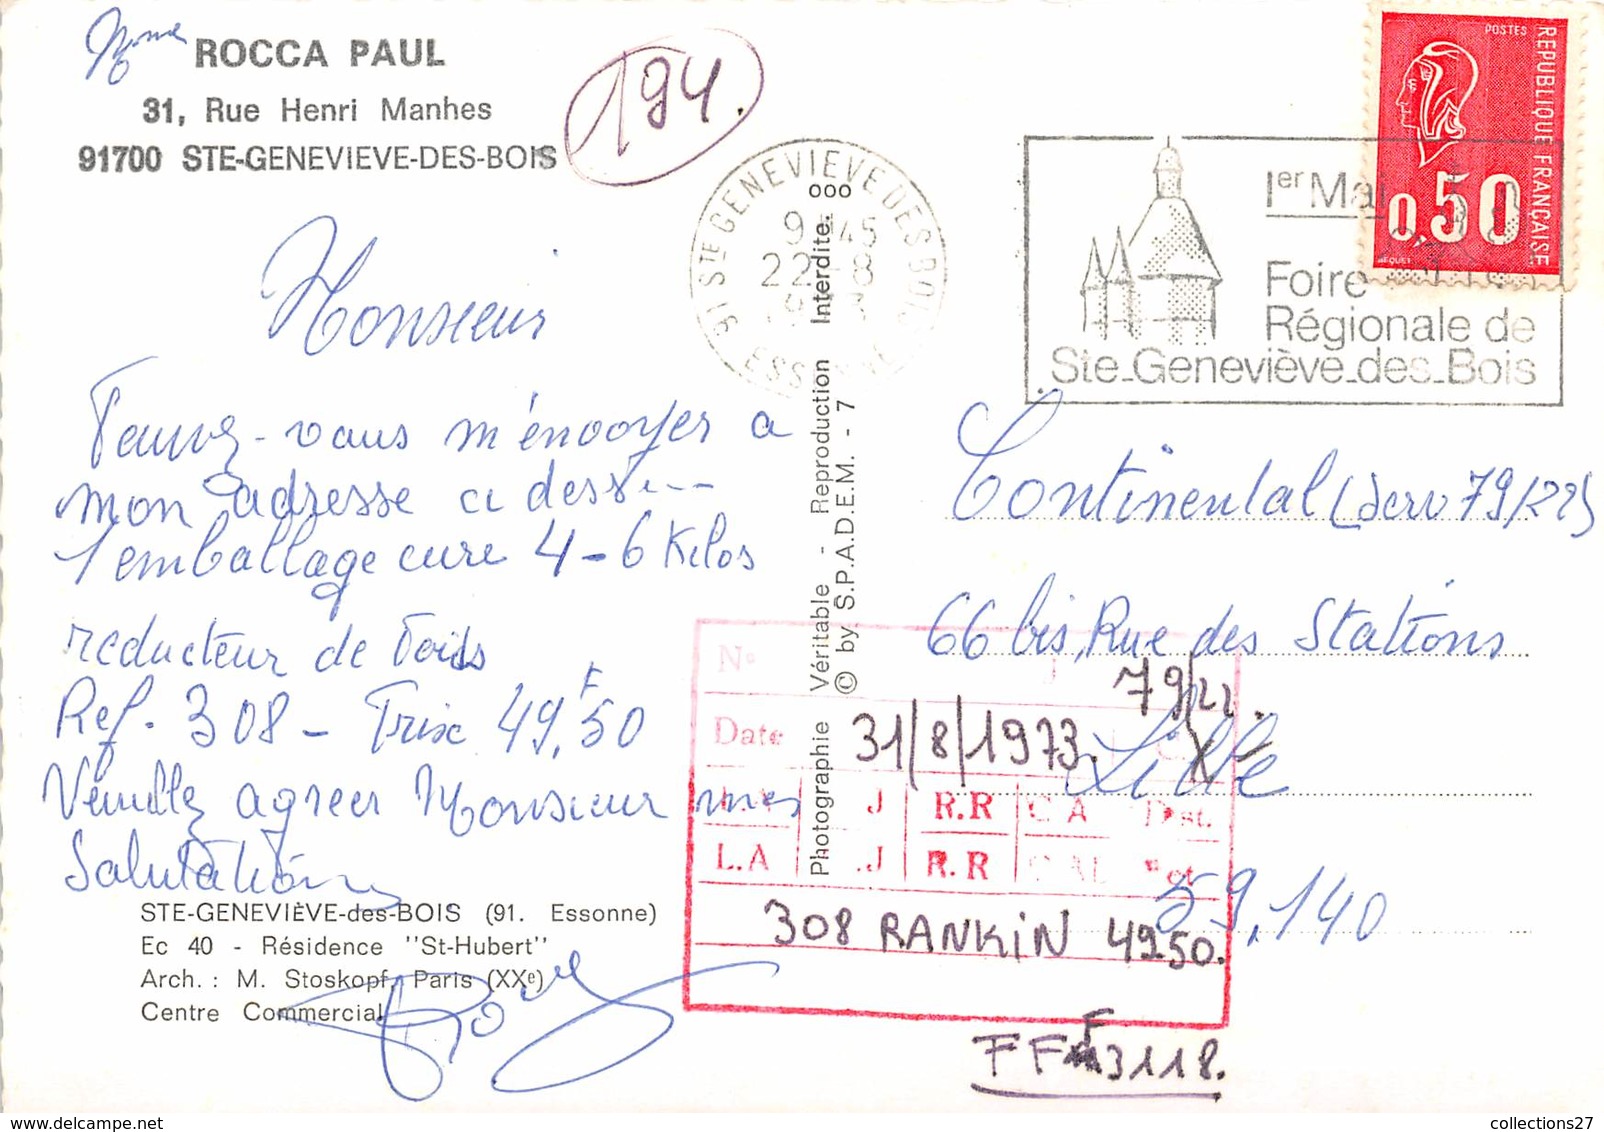 Mme ROCCA PAUL
31, Rue Henri Manhes
91700 STE-GENEVIEVE-DES-BOIS
194.
91 STE GENEVIEVE DES BOIS
9 45
22 8
ESSONNE
1er Mai
Foire
Régionale de
Ste-Geneviève-des-Bois
POSTES
REPUBLIQUE FRANCAISE
0,50
BEQUET
Monsieur
vous m'envoyer a
mon adresse ci dessus
1 emballage cure 4-6 Kilos
reducteur de Poids
Ref. 308 - Prix 49,F50
Veuillez agreer Monsieur mes
Salutations
STE-GENEVIÈVE-des-BOIS (91. Essonne)
Ec 40 - Résidence "St-Hubert"
Arch. : M. Stoskopf, Paris (XXe)
Centre Commercial
Photographie Véritable - Reproduction Interdite. ooo
© by S.P.A.D.E.M. - 7
Continental (Serv 79/22)
66 bis, Rue des Stations
Lille
59.140
No
79/22.
Date 31/8/1973. X
J R.R C A Dest.
L.A .J R.R
308 RANKIN 4950.
F F F 3118.
collections27